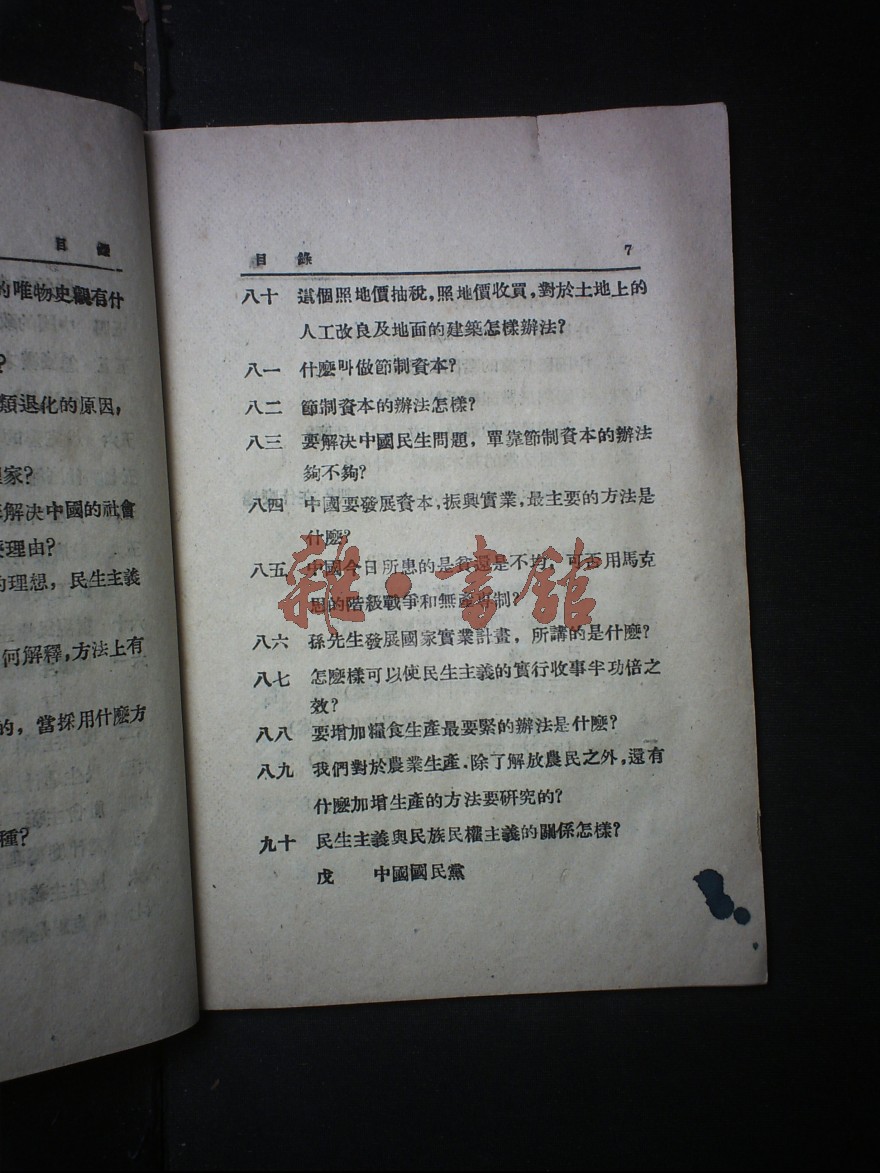 目錄
的唯物史觀有什
?
類退化的原因,
家?
解決中國的社會
理由?
的理想，民生主義
何解釋,方法上有
的，當採用什麽方
種?
目錄 7
八十 這個照地價抽稅,照地價收買,對於土地上的
人工改良及地面的建築怎樣辦法?
八一 什麽叫做節制資本?
八二 節制資本的辦法怎樣?
八三 要解決中國民生問題，單靠節制資本的辦法
夠不夠?
八四 中國要發展資本,振興實業,最主要的方法是
什麽?
八五 中國今日所患的是貧還是不均,可否用馬克
思的階級戰爭和無產專制?
八六 孫先生發展國家實業計畫，所講的是什麽?
八七 怎麽樣可以使民生主義的實行收事半功倍之
效?
八八 要增加糧食生產最要緊的辦法是什麽?
八九 我們對於農業生產.除了解放農民之外,還有
什麽加增生產的方法要研究的?
九十 民生主義與民族民權主義的關係怎樣?
戊 中國國民黨
雜·書館